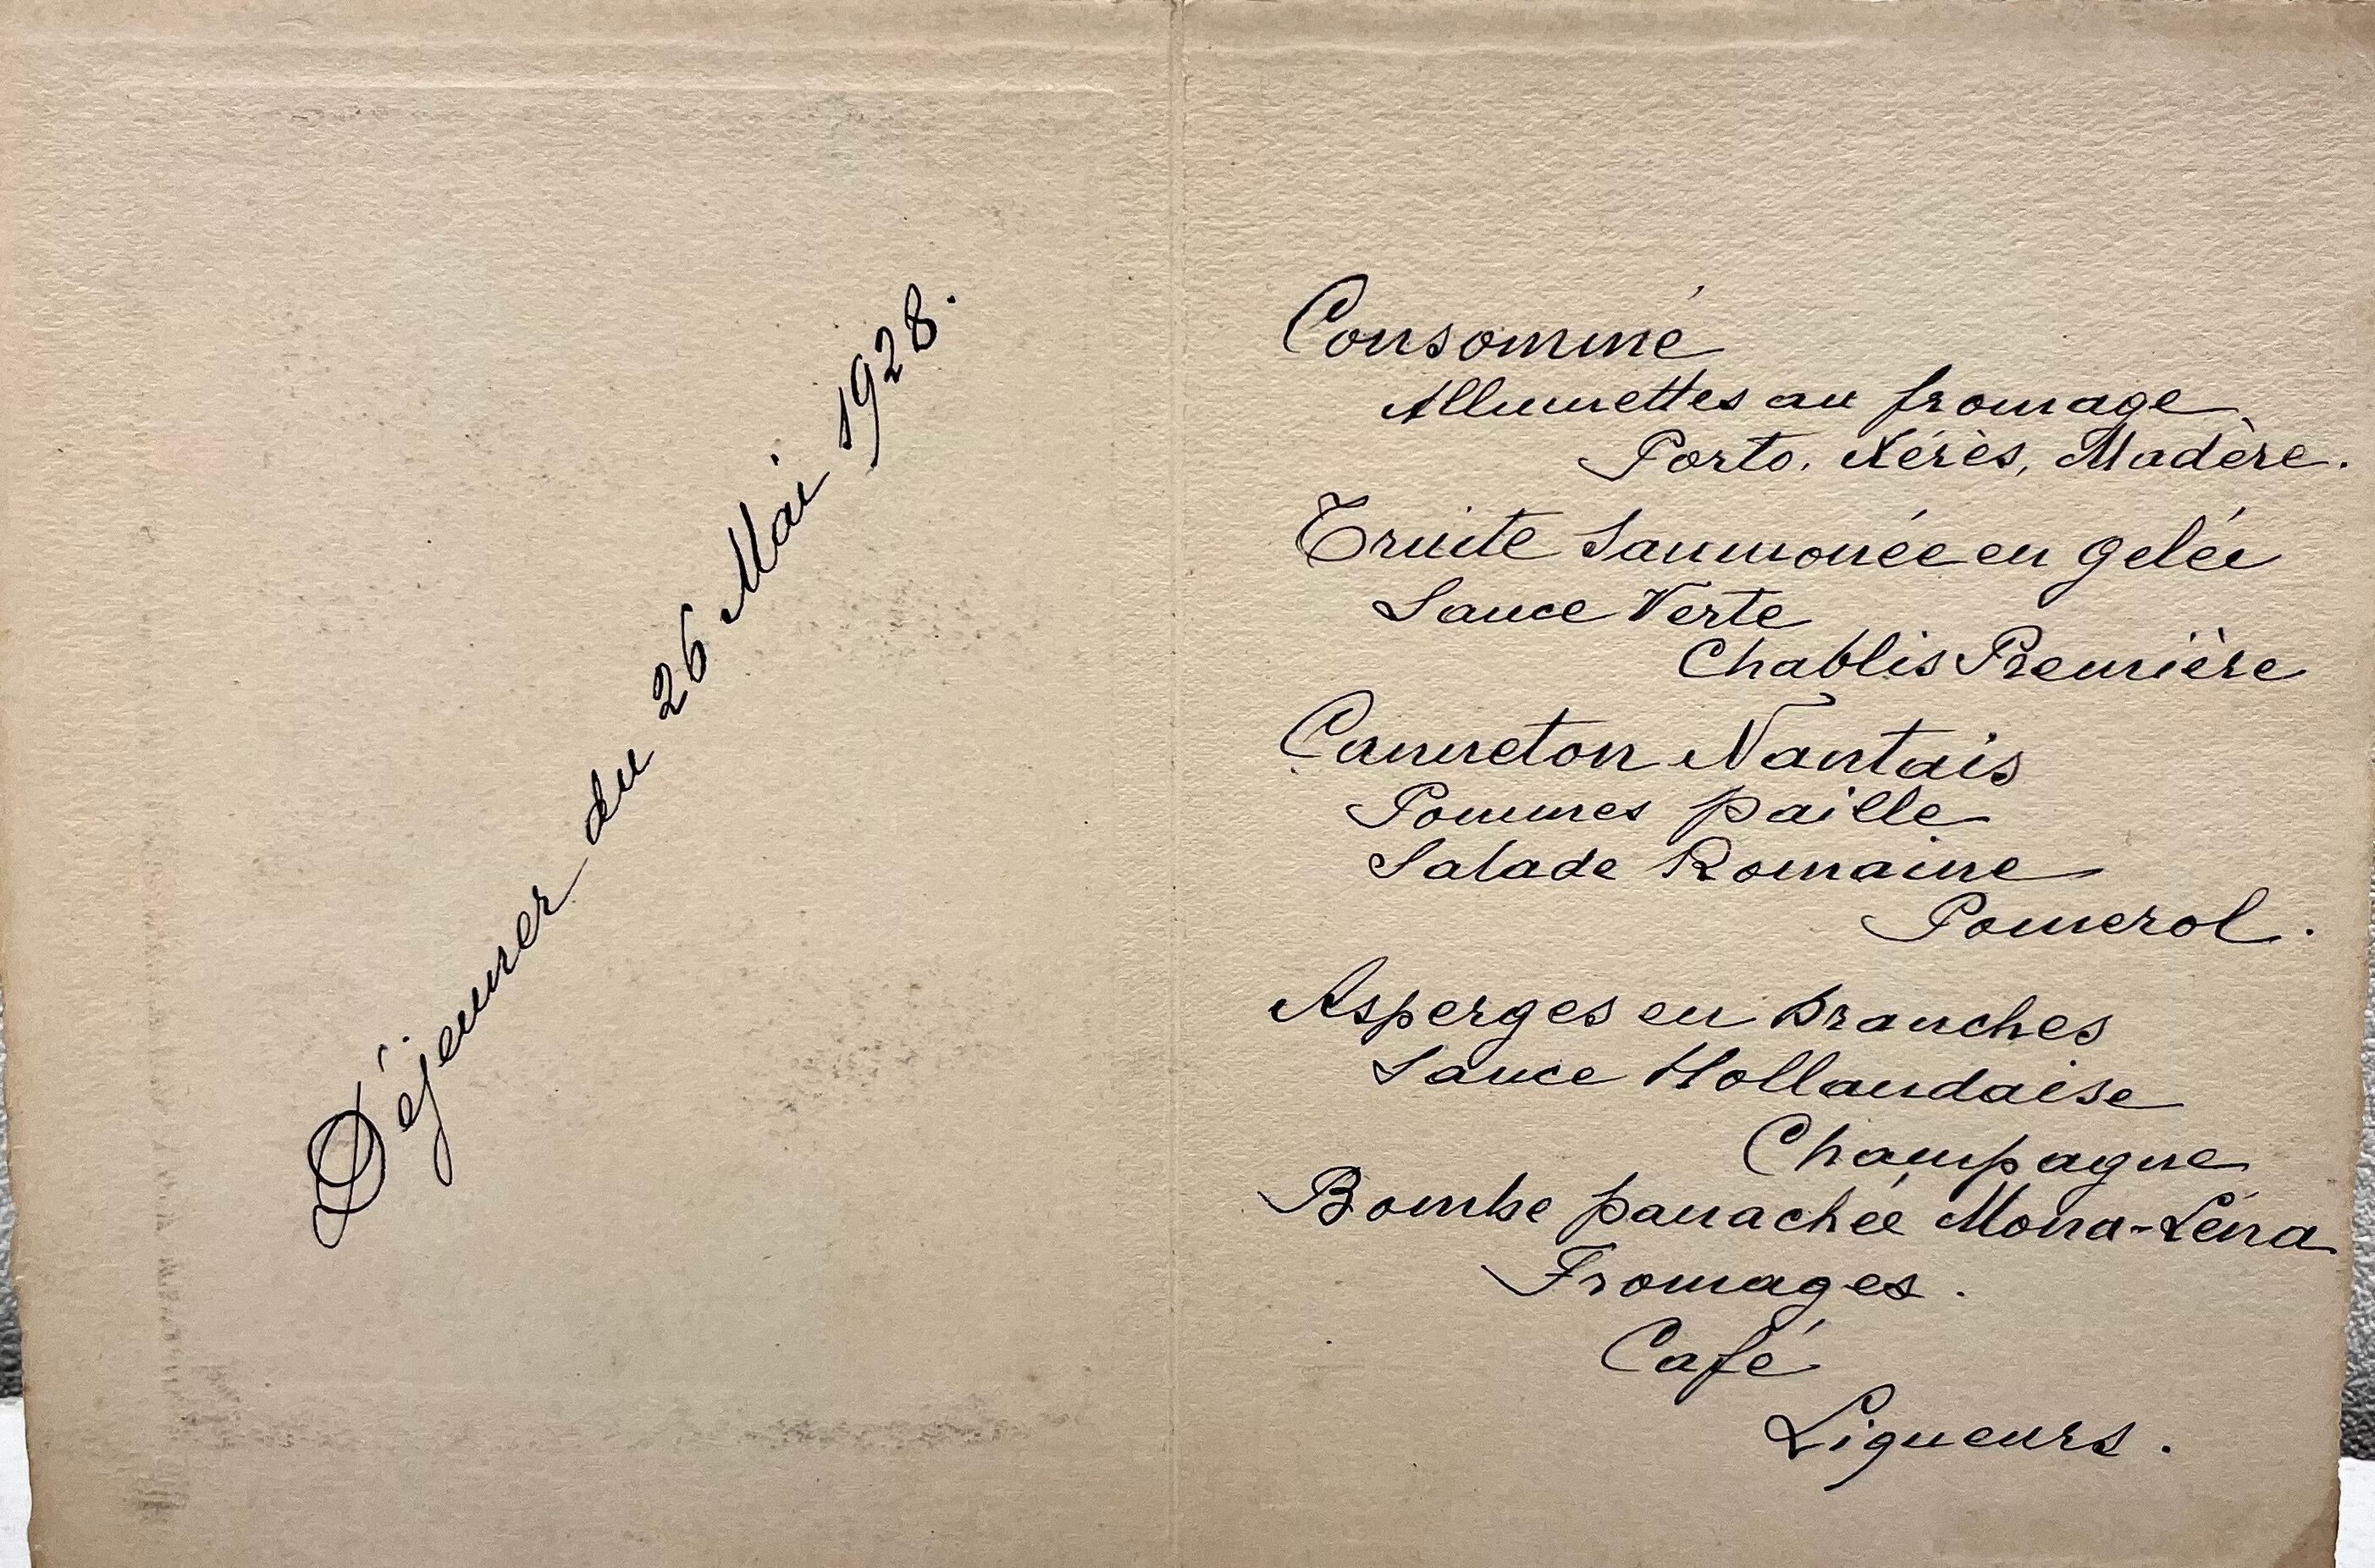 Déjeuner du 26 Mai 1928.
Consommé
Allumettes au fromage
Porto, Xérès, Madère.
Truite Saumonée en gelée
Sauce Verte
Chablis Première
Canneton Nantais
Pommes paille
Salade Romaine
Pomerol.
Asperges en Branches
Sauce Hollandaise
Champagne
Bombe panachée Mona-Léna
Fromages.
Café
Liqueurs.